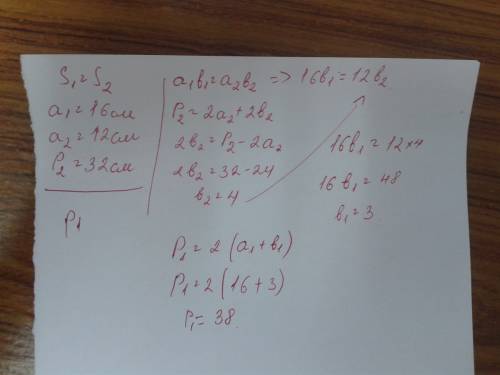 S₁=S₂
a₁=16см
a₂=12см
P₂=32см
P1
a₁b₁=a₂b₂ => 16b₁=12b₂
P₂=2a₂+2b₂
2b₂=P₂-2a₂
2b₂=32-24
b₂=4
16b₁=12×4
16b₁=48
b₁=3.
P₁=2(a₁+b₁)
P1=2(16+3)
P₁=38.